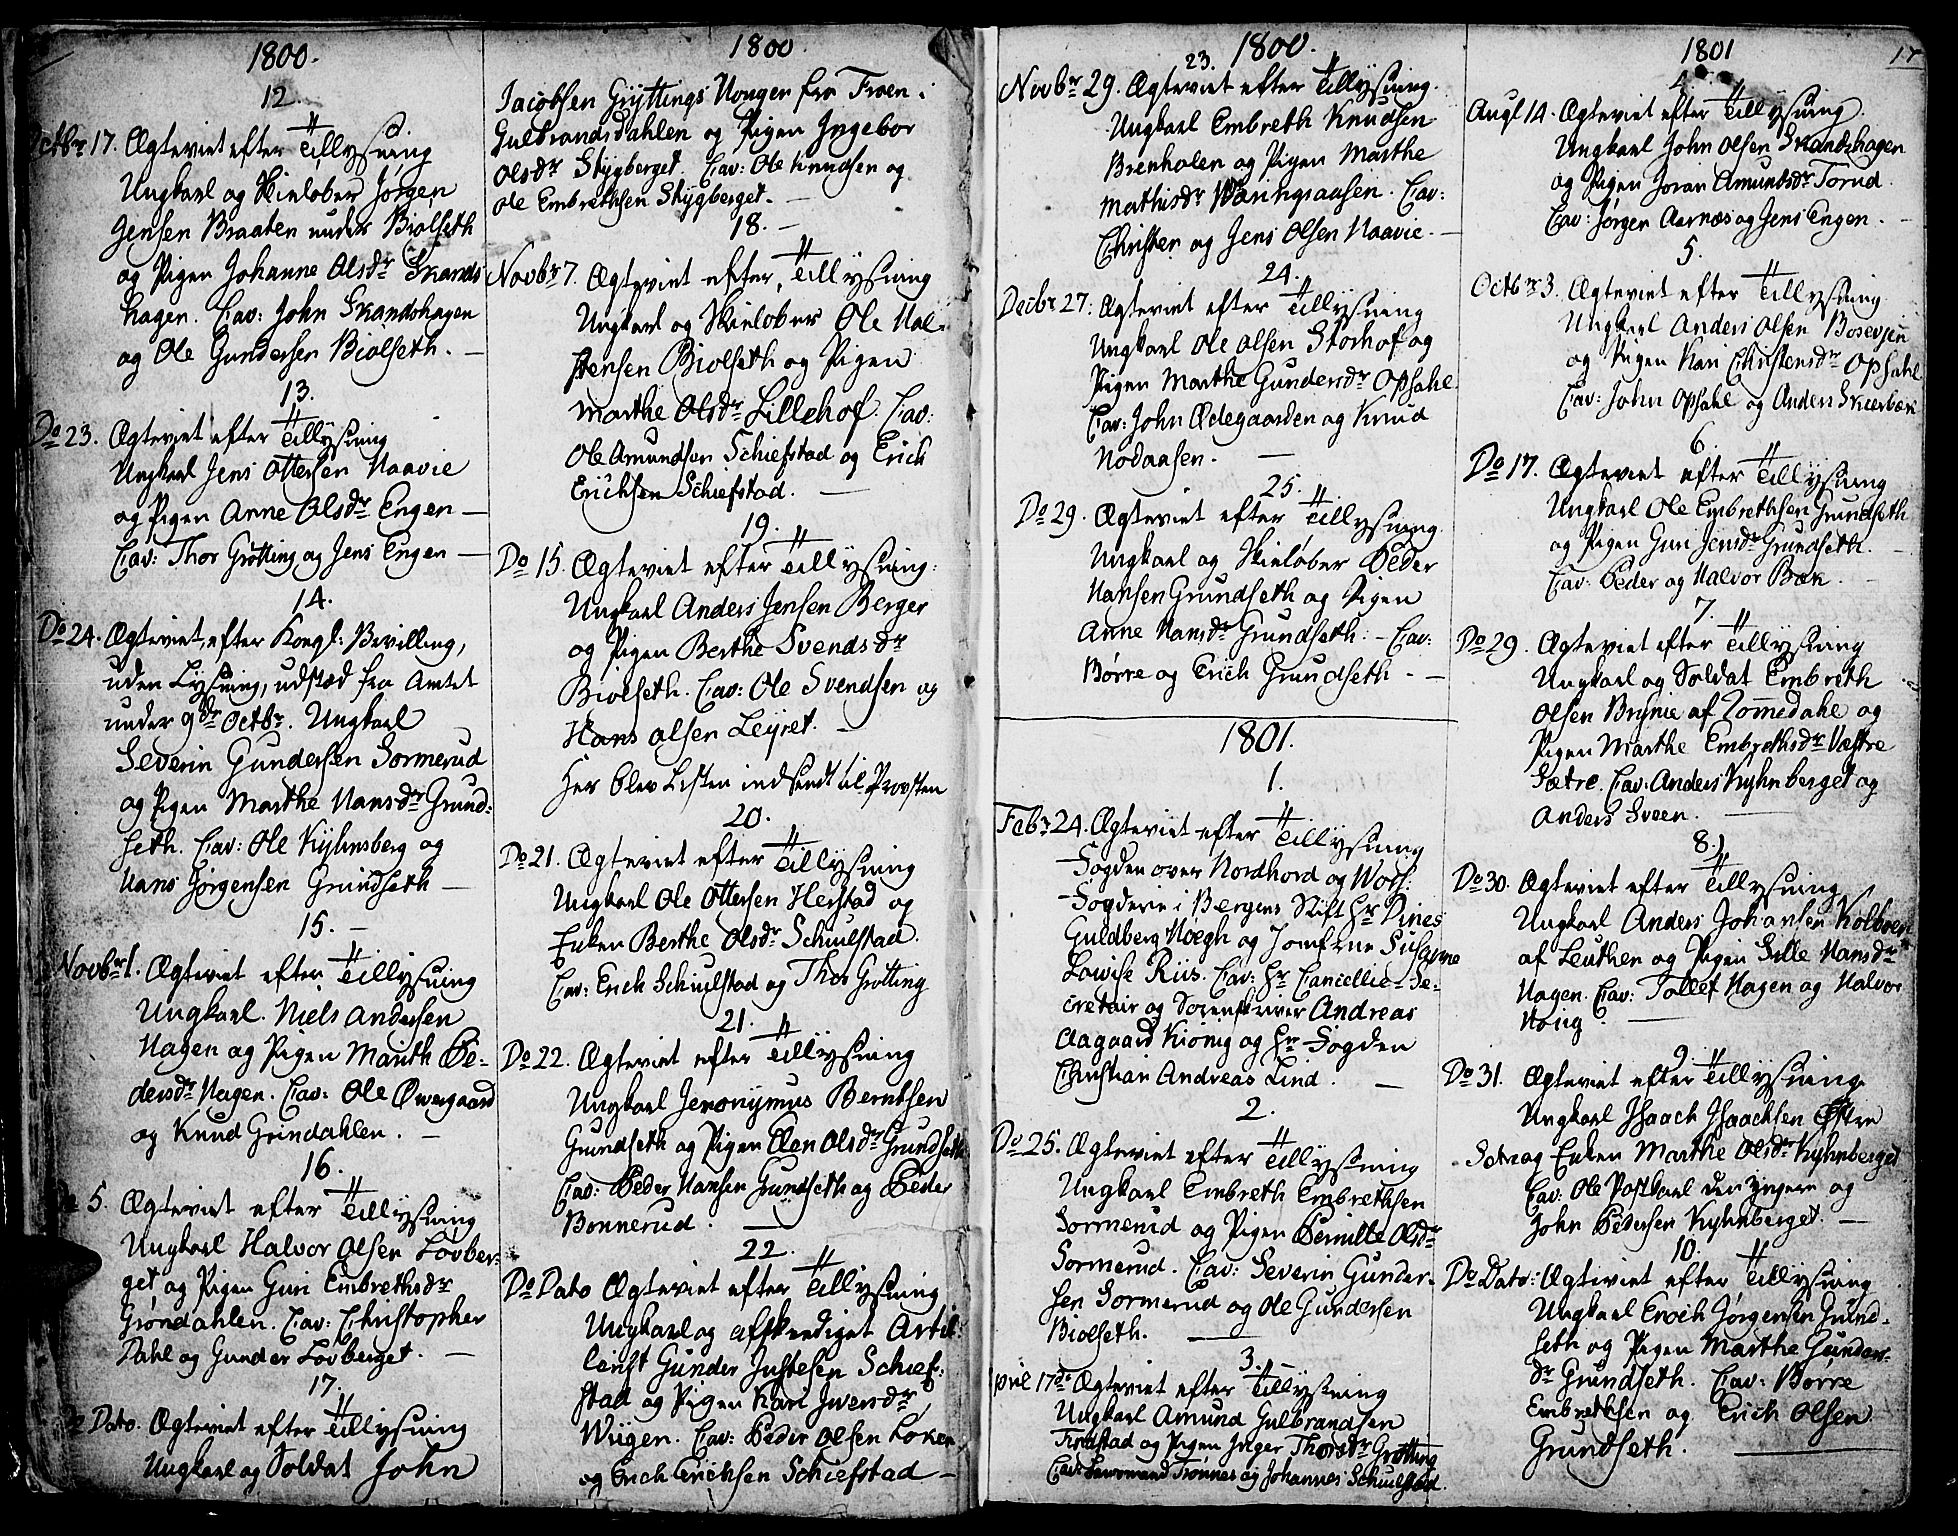 1800.
12.
Octbr 17. Ægteviet efter Tillysning
Ungkarl og Skieløber Jørgen
Jensen Braaten under Biolseth
og Pigen Johanne Olsdr Skands
hagen. Cav: John Skandshagen
og Ole Gundersen Biolseth. —
13.
Do 23. Ægteviet efter Tillysning
Ungkarl Jens Ottersen Naavie
og Pigen Anne Olsdr Engen —
Cav: Thor Grøtting og Jens Engen —
14.
Do 24. Ægteviet, efter Kongl: Bevilling,
uden Lysning, udstæd fra Amtet
under 9de Octbr. Ungkarl
Severin Gundersen Sormerud
og Pigen Marthe Hansdr Grund-
seth. Cav: Ole Kyhnsberg og
Hans Jørgensen Grundseth —
15. —
Novbr 1. Ægteviet efter Tillysning
Ungkarl. Niels Andersen
Hagen og Pigen Marith Pe-
dersdr Hagen. Cav: Ole Øvergaard
og Knud Grindahlen. —
16.
5. Ægteviet efter Tillysning
Ungkarl Halvor Olsen Lovber-
get, og Pigen Guri Embrethsdr
Grøndahlen. Cav: Christopher
Dahl og Gunder Lovberget. —
17.
Do Dato. Ægteviet efter Tillysning
Ungkarl og Soldat John
1800
Jacobsen Gryttings Nonger fra Froen i
Gulbrandsdahlen og Pigen Ingebor
Olsdr Stygberget. Cav: Ole Knudsen og
Ole Embrethsen Stygberget. —
18. —
Novbr 7. Ægteviet efter, Tillysning
Ungkarl og Skieløber Ole Hal-
stensen Biolseth og Pigen
Marthe Olsdr Lillehof. Cav:
Ole Amundsen Schiefstad og Erich
Erichsen Schiefstad. —
19.
Do 15. Ægteviet efter Tillysning:
Ungkarl Anders Jensen Berger
og Pigen Berthe Svendsdr
Biolseth. Cav: Ole Svendsen og
Hans Olsen Leyret. —
Her blev Listen indsendt til Provsten
20.
Do 21. Ægteviet efter Tillysning
Ungkarl Ole Ottersen Herstad og
Enken Berthe Olsdr Schiulstad.
Cav: Erich Schiulstad og Thor Grøtting
21.
Do 22. Ægteviet efter Tillysning
Ungkarl Jeronymus Berntsen
Grundseth og Pigen Elen Olsdr Grundseth
Cav: Peder Hansen Grundseth og Peder
Bonnerud. —
22.
Do Dato Ægteviet efter Tillysning
Ungkarl og afskediget Artil-
lerist Gunder Justesen Schief-
stad og Pigen Kari Iversdr
Wiigen. Cav: Peder Olsen Loken
og Erich Erichsen Schiefstad —
1800.
23.
Novbr 29. Ægteviet efter Tillysning.
Ungkarl Embreth Knudsen
Brenholen og Pigen Marthe
Mathisdr Waningsaasen. Cav:
Christen og Jens Olsen Naavie. —
24.
Decbr 27. Ægteviet efter Tillysning
Ungkarl Ole Olsen Storhof og
Pigen Marthe Gundersdr Opsahl
Cav: John Ødegaarden og Knud
Nodaasen. —
25.
Do 29. Ægteviet efter Tillysning.
Ungkarl og Skieløber Peder
Hansen Grundseth og Pigen
Anne Hansdr Grundseth. — Cav:
Børre og Erich Grundseth. —
1801.
1.
Febr 24. Ægteviet efter Tillysning
Fogden over Nordhord og Wors:
Fogderie i Bergens Stift Hr Dines
Guldberg Høegh og Jomfrue Susanne
Lovise Riis. Cav: Hr Cancellie-Se-
cretair og Sorenskriver Andreas
Aagaard Kionig og Hr Fogden
Christian Andreas Lind. —
2.
Do 25. Ægteviet efter Tillysning
Ungkarl Embreth Embrethsen
Sormerud og Pigen Pernille Olsdr
Sormerud. Cav: Severin Gunder-
sen Sormerud og Ole Gundersen
Biolseth. —
3.
April 17de Ægteviet efter Tillysning
Ungkarl Amund Gulbrandsen
Findstad og Pigen Inger Thorsdr Grøtting
Cav: Trønnes og Johannes Schiulstad.
1801
17
4.
Augl 14. Ægteviet efter Tillysning.
Ungkarl John Olsen Skandshagen
og Pigen Joran Amundsdr Torud.
Cav: Jørgen Aarnæs og Jens Engen. —
5.
Octbr 3. Ægteviet efter Tillysning
Ungkarl Anders Olsen Bosevjen
og Pigen Kari Christensdr Opsahl
Cav: John Opsahl og Anders Skierbæk
6.
Do 17. Ægteviet efter Tillysning
Ungkarl Ole Embrethsen Grundseth
og Pigen Guri Jensdr Grundseth. —
Cav: Peder og Halvor Bæk. —
7.
Do 29. Ægteviet efter Tillysning
Ungkarl og Soldat Embreth
Olsen Brynie af Zomedahl og
Pigen Marthe Embrethsdr Væstre
Sætre. Cav: Anders Kyhnberget og
Anders Sveen. —
8.
Do 30. Ægteviet efter Tillysning
Ungkarl Anders Johansen Kolboen
af Leuthen og Pigen Sille Hansdr
Hagen. Cav: Tollef Hagen og Halvor
Houg. —
9
Do 31. Ægteviet efter Tillysning
Ungkarl Isaach Isaachsen Østre
Setre og Enken Marthe Olsdr Kyhnberget
Cav: Ole Postkarl den Yngere og
John Pedersen Kyhnberget. —
10.
Do Dato: Ægteviet efter Tillysning
Ungkarl Erich Jørgensen Grund-
seth og Pigen Marthe Gunders-
dr Grundseth. Cav: Børre
Embrethsen og Erich Olsen
Grundseth. —